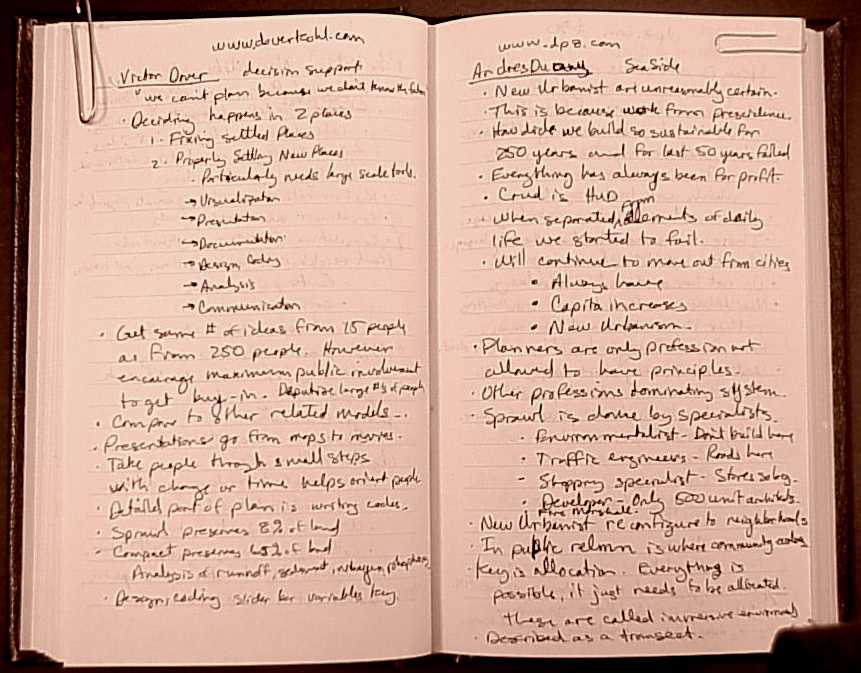 www.doverkohl.com
Victor Dover decision support
"we can't plan because we don't know the future
· Deciding happens in 2 places
1. Fixing settled Places
2. Properly Settling New Places
· Particularly needs large scale tools.
→ Visualization
→ Presentation
→ Documentation
→ Design Coding
→ Analysis
→ Communication
· Get same # of ideas from 15 people
as from 250 people. However
encourage maximum public involvement
to get buy-in. Deputize large #'s of people
· Compare to other related models -.
· Presentations go from maps to movies.
· Take people through small steps
with change or time helps orient people
· Detailed part of plan is writing codes.
· Sprawl preserves 8% of land
- Compact preserves % of land
Analysis of runoff, sediment, nitrogen, phosphorus
· Design coding slider bar variables key.
www.dpz.com
Andres Duany SeaSide
· New Urbanist are unreasonably certain.
· This is because work from presidence.
· How did we build so sustainable for
250 years and for last 50 years failed
· Everything has always been for profit.
· Crud is HUD
when separated from elements of daily
life we started to fail.
· Will continue to move out from cities
• Always have
• Capita increases
• New Urbanism.
· Planners are only profession not
allowed to have principles.
· Other professions dominating system.
· Sprawl is done by specialists.
· Environmentalist - Don't build here
· Traffic engineers - Roads here
- Shopping specialist - Stores
· Developer - Only 500 unit
Fire Marshall.
· New Urbanist reconfigure to neighborhoods
· In public relmn is where community
· Key is allocation. Everything is
possible, it just needs to be allocated.
These are called immersive environments
· Described as a transect.